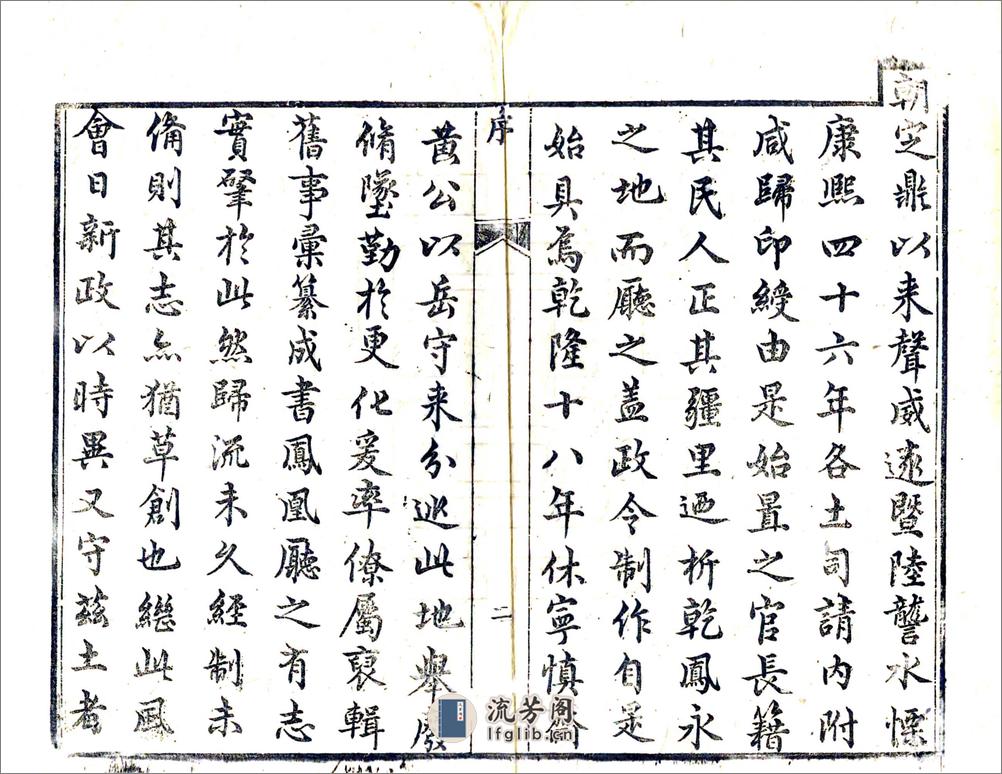 朝定鼎以来聲威遠暨陸讋水慄
康熙四十六年各土司請内附
咸歸印綬由是始置之官長籍
其民人正其疆里迺析乾鳳永
之地而廳之蓋政令制作自是
始具焉乾隆十八年休寧慎
序
二
黄公以岳守来分巡此地舉廢
脩墜勤於更化爰率僚屬裒輯
舊事彙纂成書鳳凰廳之有志
實肇於此然歸流未久經制未
備則其志亦猶草創也繼此風
會日新政以時異又守茲土者
流芳阁
lfglib.cn